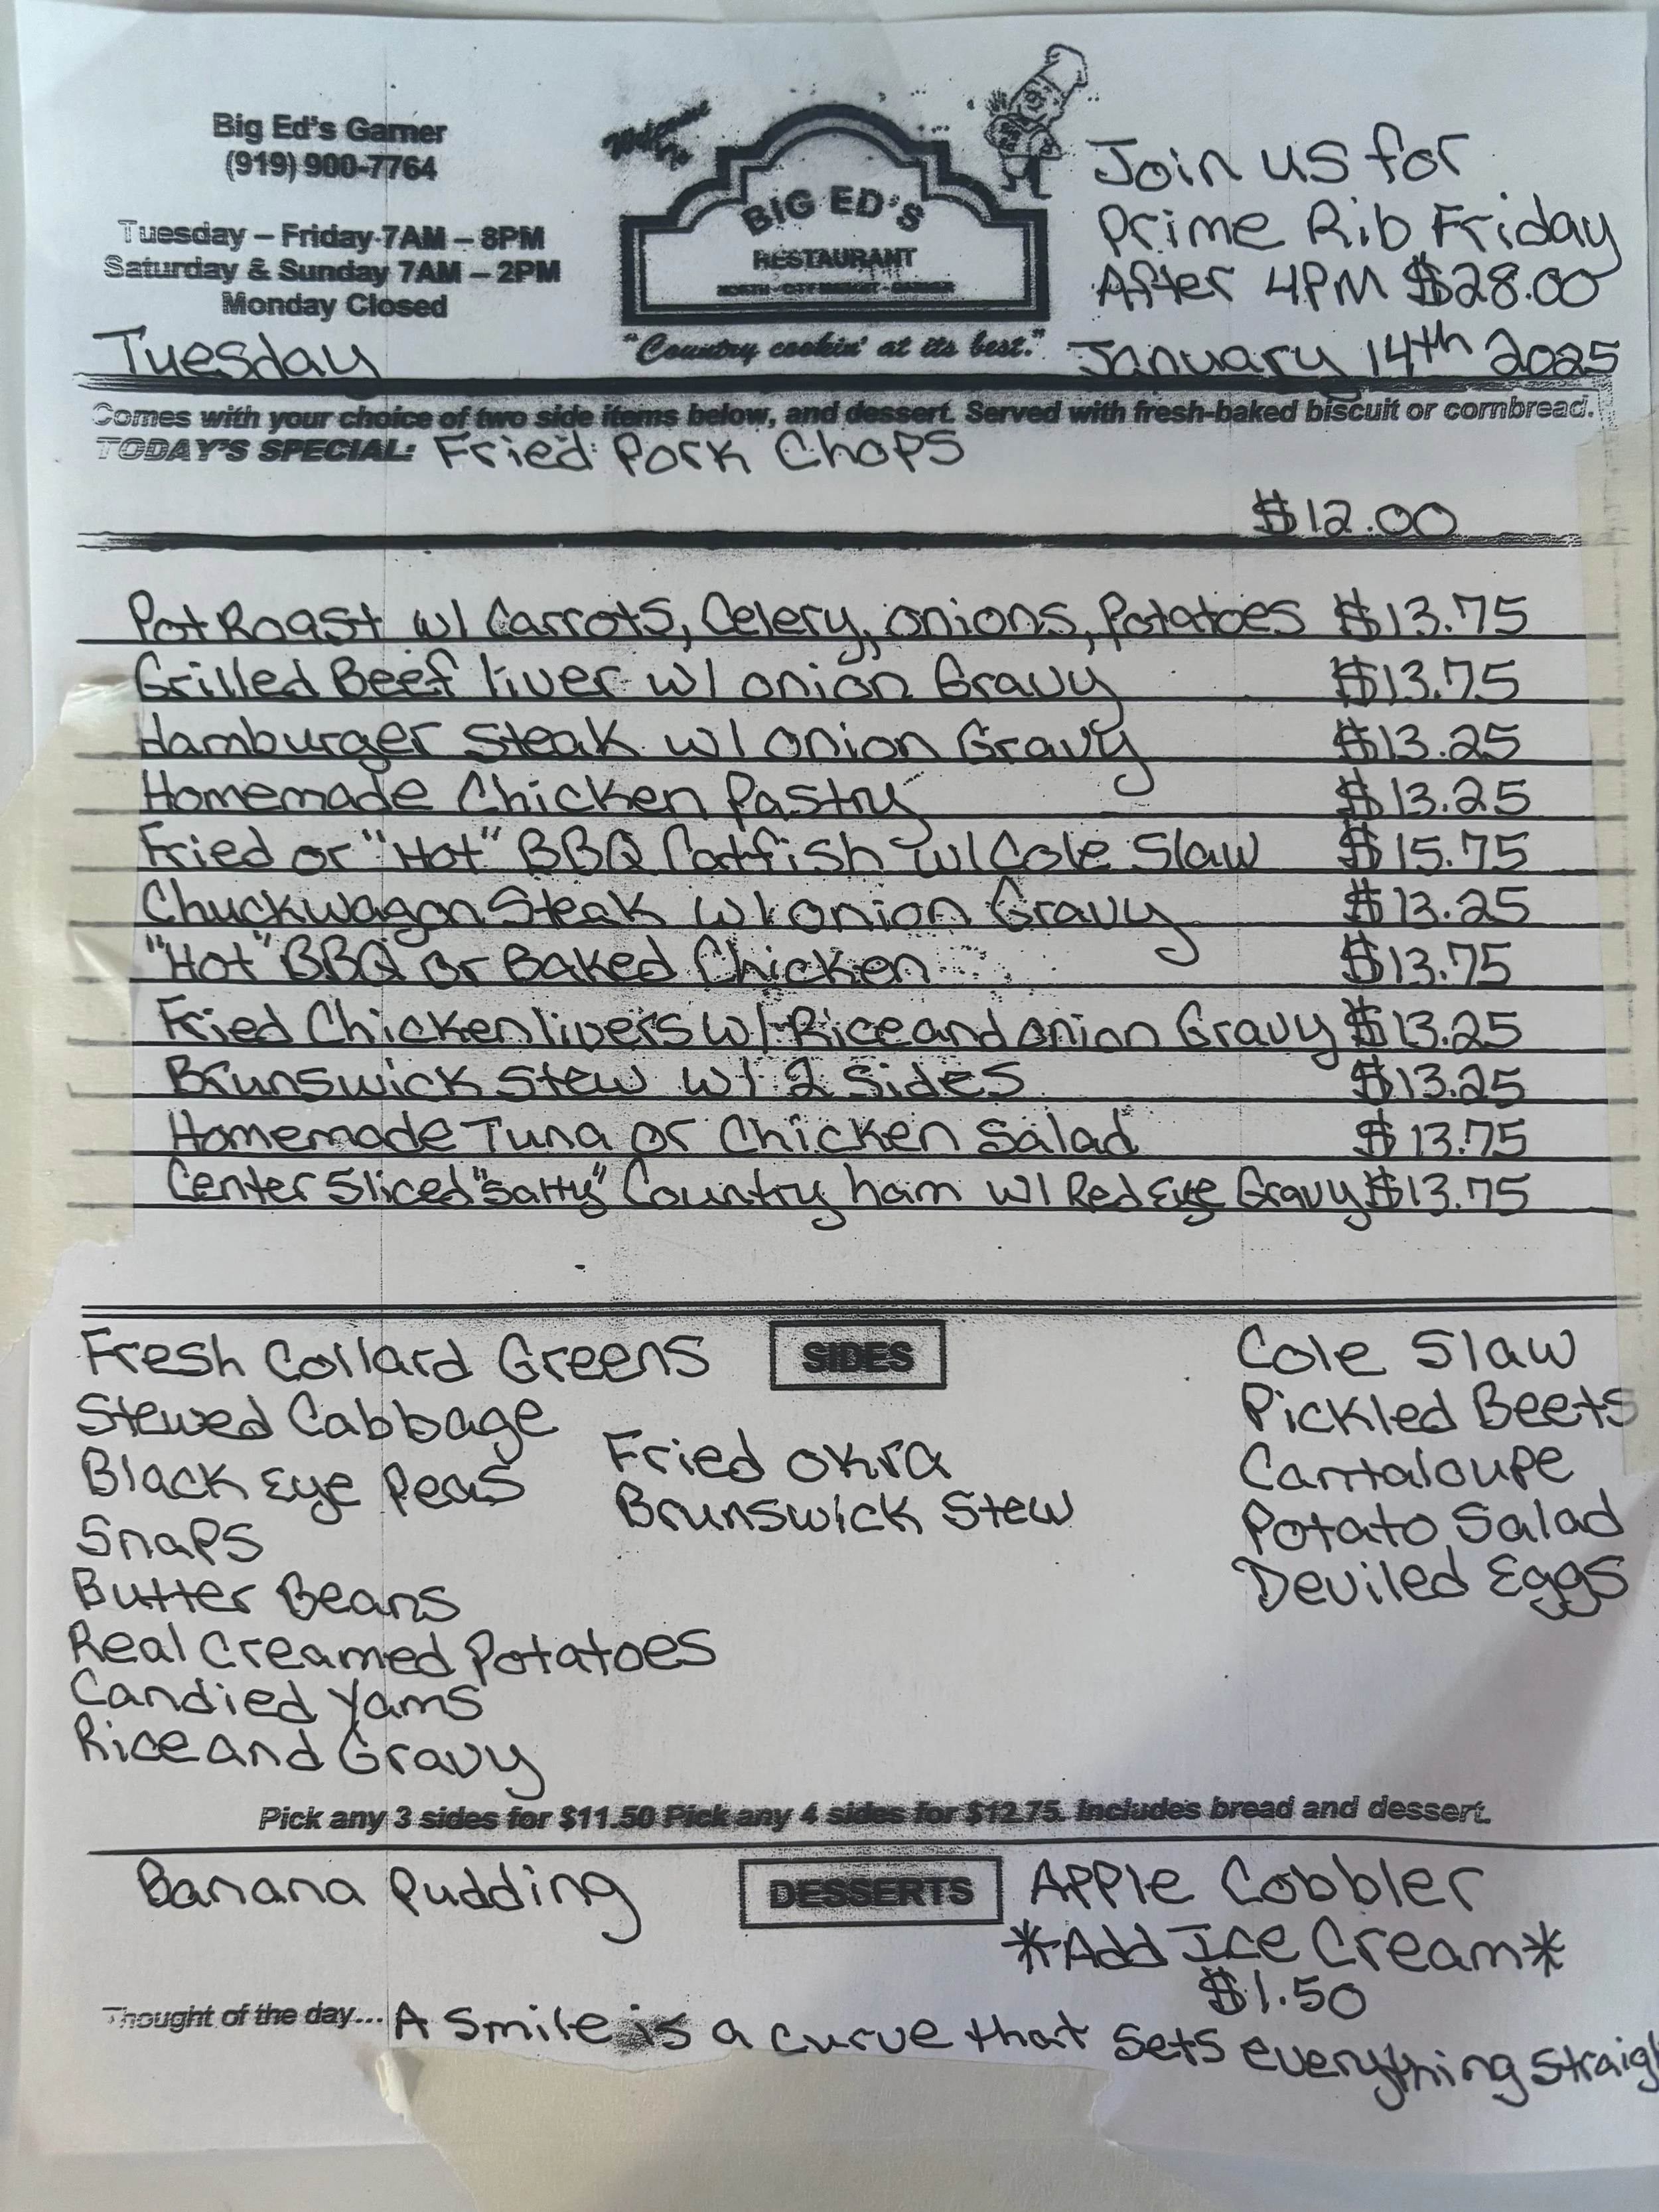 Big Ed's Garner
(919) 900-7764
Tuesday – Friday 7AM – 8PM
Saturday & Sunday 7AM – 2PM
Monday Closed
Tuesday
Welcome To
BIG ED'S
RESTAURANT
NORTH - CITY MARKET - GARNER
"Country cookin' at its best."
Join us for
Prime Rib Friday
After 4PM $28.00
January 14th 2025
Comes with your choice of two side items below, and dessert. Served with fresh-baked biscuit or cornbread.
TODAY'S SPECIAL: Fried Pork Chops
$12.00
Pot Roast w/ Carrots, Celery, onions, Potatoes $13.75
Grilled Beef liver w/ onion Gravy $13.75
Hamburger Steak w/ onion Gravy $13.25
Homemade Chicken Pastry $13.25
Fried or "Hot" BBQ Catfish w/ Cole Slaw $15.75
Chuckwagon Steak w/ onion Gravy $13.25
"Hot" BBQ or Baked Chicken $13.75
Fried Chicken livers w/ Rice and onion Gravy $13.25
Brunswick Stew w/ 2 Sides $13.25
Homemade Tuna or Chicken Salad $13.75
Center Sliced "Salty" Country ham w/ Red Eye Gravy $13.75
SIDES
Fresh Collard Greens
Stewed Cabbage
Black Eye Peas
Snaps
Butter Beans
Real Creamed Potatoes
Candied Yams
Rice and Gravy
Fried Okra
Brunswick Stew
Cole Slaw
Pickled Beets
Cantaloupe
Potato Salad
Deviled Eggs
Pick any 3 sides for $11.50 Pick any 4 sides for $12.75. Includes bread and dessert.
DESSERTS
Banana Pudding
Apple Cobbler
*Add Ice Cream*
$1.50
Thought of the day... A Smile is a curve that sets everything straigh